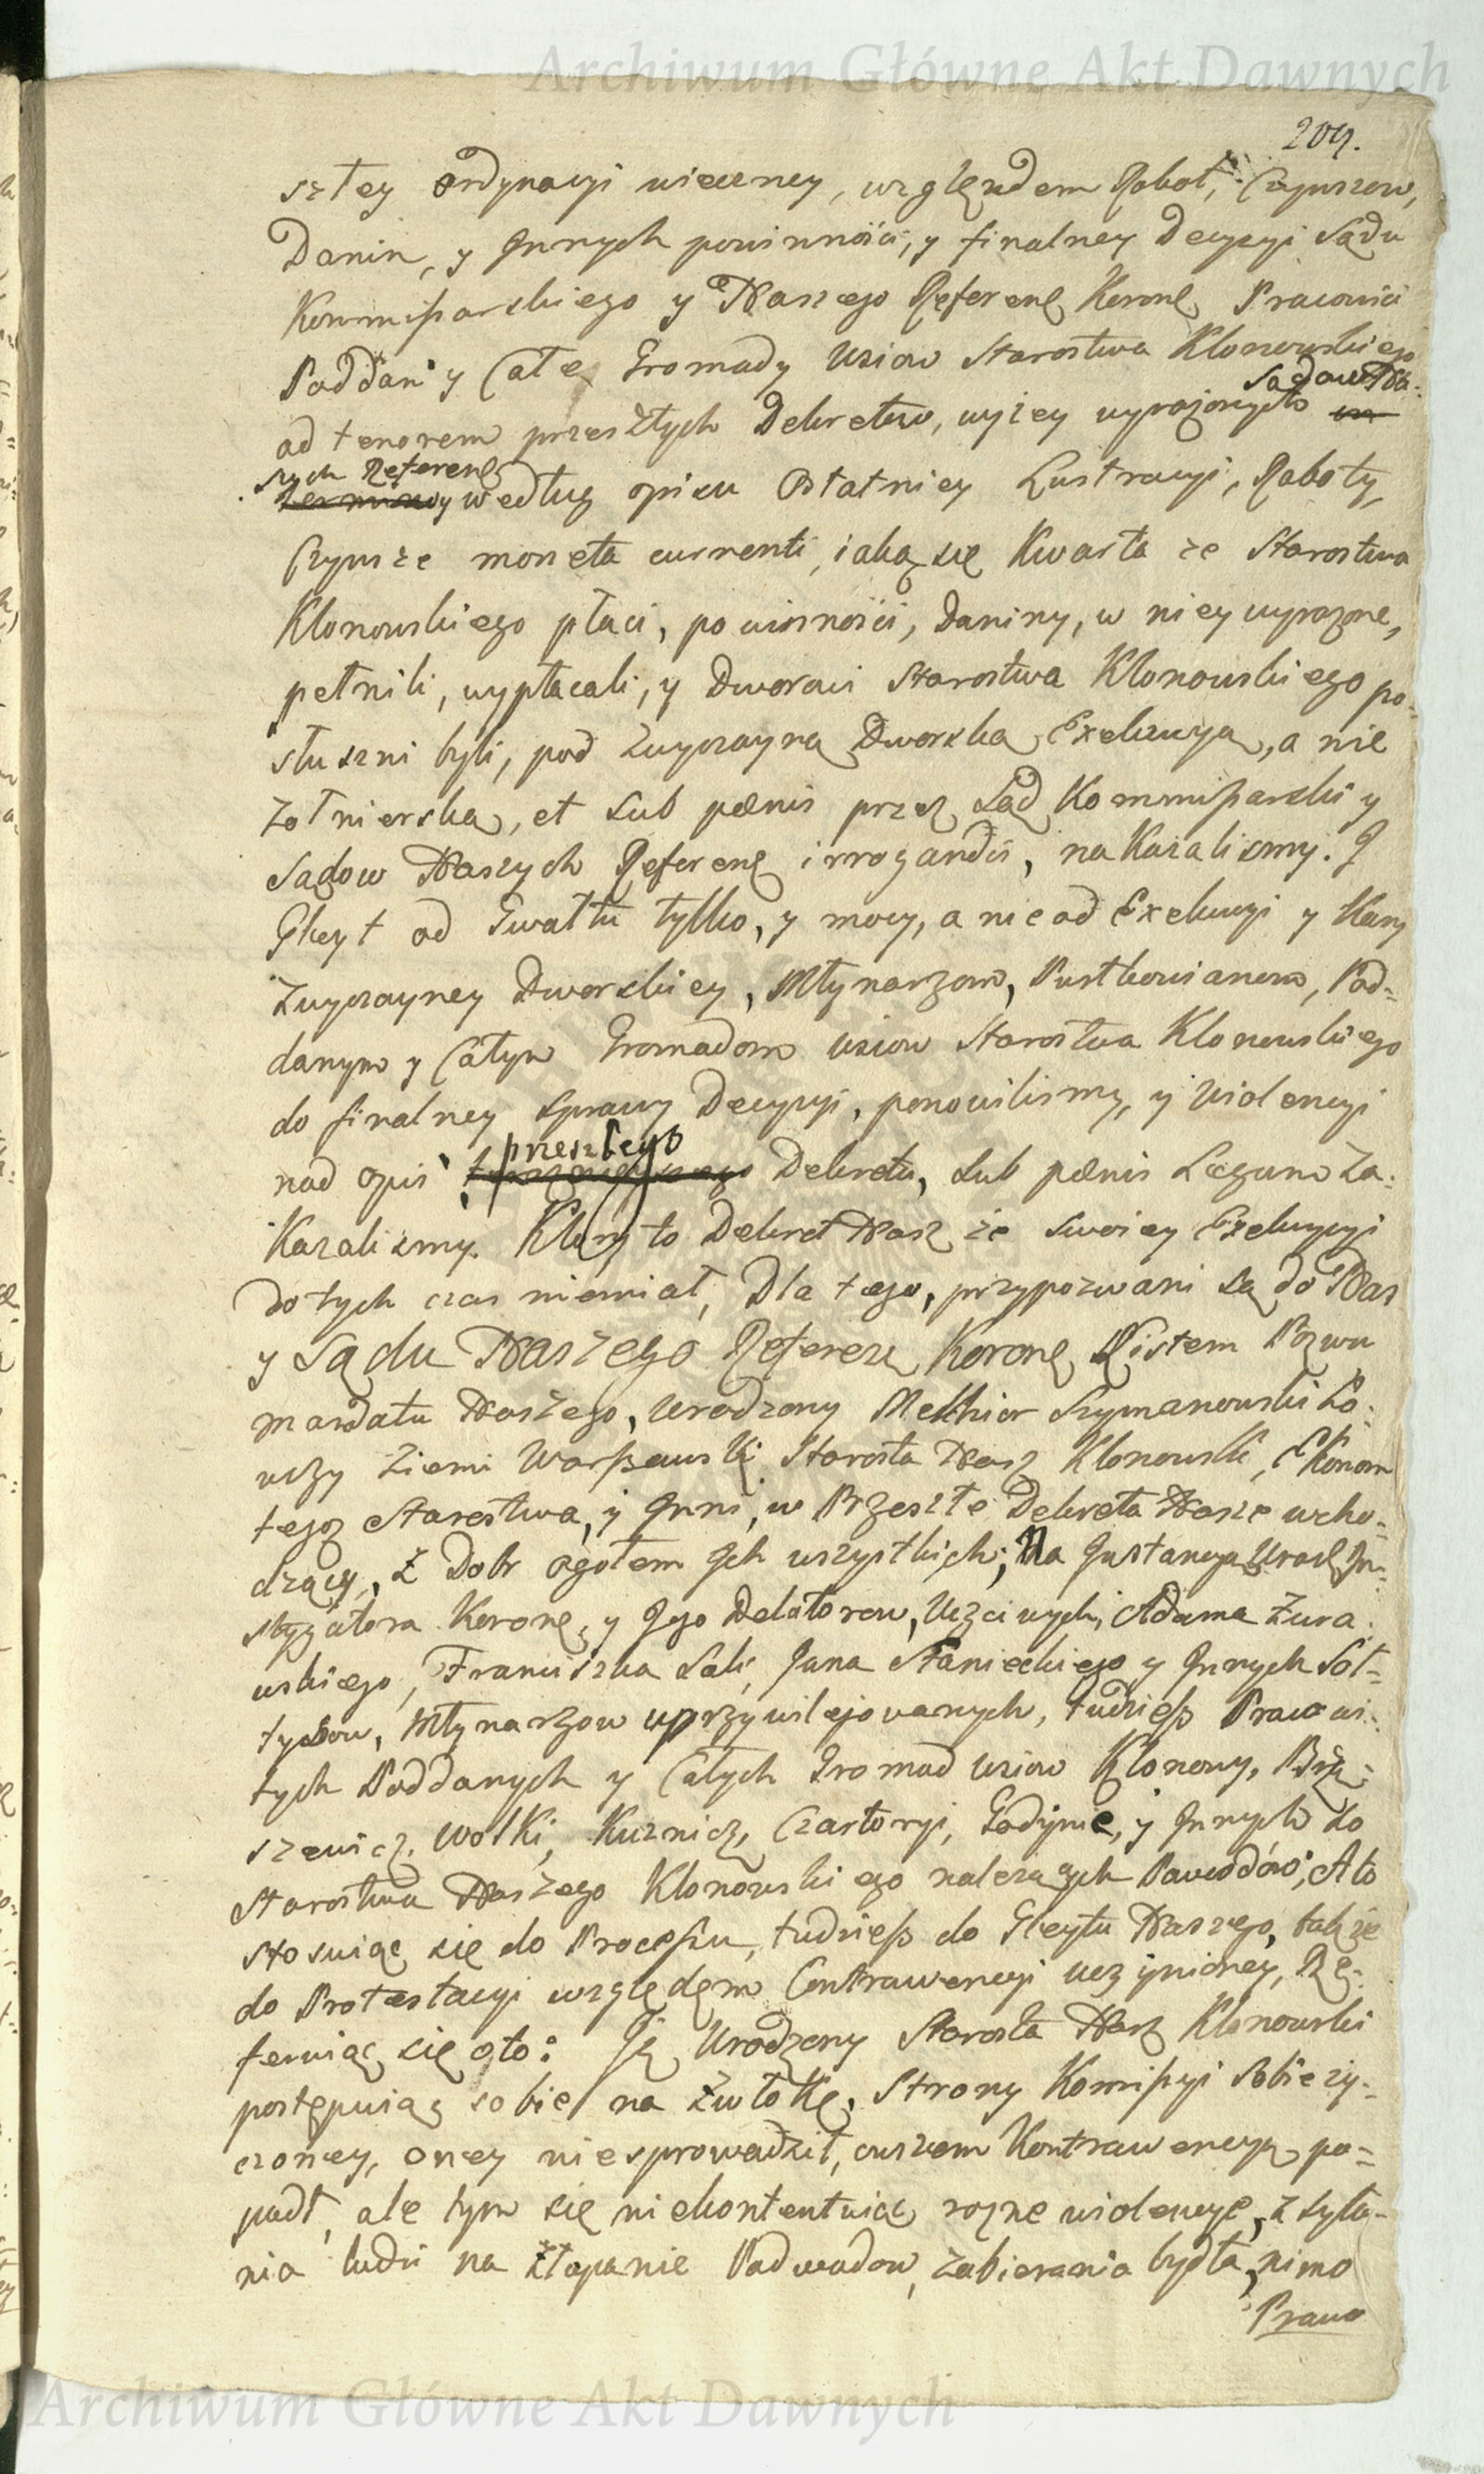 Archiwum Główne Akt Dawnych
204.
szłey ordynacyi wieczney, względem Robot, Czynszow,
Danin, y Innych powinności, y finalney Decyzyi Sądu
Kommissarskiego y Naszego Referen Koron Pracowici
Poddani y Całe Gromady Wsiow Starostwa Klonowskiego
Sądow Na-
ad tenorem przeszłych Dekretow, wyżey wyrażonych
szych Referen
według opisu Ostatniey Lustracyi, Roboty,
Czynsze moneta currenti, iaką się Kwarta ze Starostwa
Klonowskiego płaci, powinności, Daniny, w niey wyrażone,
pełnili, wypłacali, y Dworowi Starostwa Klonowskiego po-
słuszni byli, pod zwyczayną Dworską Exekucyą, a nie
żołnierską, et sub pœnis przez Sąd Kommissarski y
Sądow Naszych Referen irrogandis, nakazalismy. I
Gleyt od Gwałtu tylko, y mocy, a nie od Exekucyi y Kary
zwyczayney Dworskiey, Młynarzom, Pustkowianom, Pod-
danym y Całym Gromadom Wsiow Starostwa Klonowskiego
do finalney sprawy Decyzyi, ponowilismy, y Violencyi
przeszłego
nad opis Dekretu, sub pœnis Legum za-
Kazalismy. Ktory to Dekret Nasz że swoiey Exekucyi
do tych czas niemiał, Dla tego, przypozwani są do Nas
y Sądu Naszego Referen Koron Wistem Pozwu
mandatu Naszego, Urodzony Melchior Szymanowski Ło-
wczy Ziemi Warszawski Starosta Nasz Klonowski, Ekonom
tegoz Starostwa, y Inni, w Przeszłe Dekreta Nasze wcho-
dzący, z Dobr ogołem Ich wszystkich; Na Instancyą Urodz In-
stygatora Koron, y Jego Delatorow, Uczciwych, Adama Żura-
wskiego, Franciszka Sali, Jana Stanieckiego y Innych Soł-
tysow, Młynarzow uprzywilejowanych, tudzież Pracowi-
tych Poddanych y Całych Gromad Wsiow Klonowy,
Wolki, Kuznicz, Czartoryi, Godynie, y Innych do
Starostwa Naszego Klonowskiego należących Powodów; A to
stosuiąc się do Processu, tudzież do Gleytu Naszego, także
do Protestacyi względem Contrawencyi uczynioney, Re-
feruiąc się oto: Iż Urodzony Starosta Nasz Klonowski
postępuiąc sobie na zwłokę, Strony Komissyi sobie zy-
czoney, oney niesprowadził, owszem Kontrawencyą po-
padł, ale tym się niekontentuiąc rożne violencye, zsyła-
nia ludzi na złapanie Podwodow, zabierania bydła, mimo
Prawo
Archiwum Główne Akt Dawnych